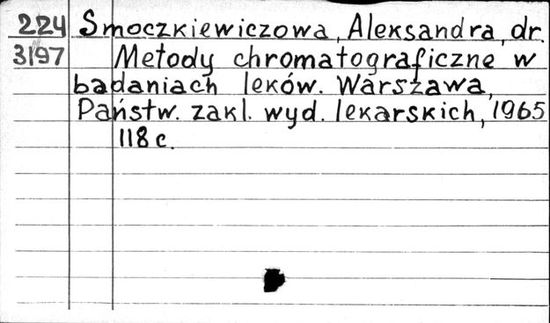 224 Smoczkiewiczowa, Aleksandra, dr.
3197 Metody chromatograficzne w
badaniach leków. Warszawa,
Państw. zakl. wyd. lekarskich, 1965
118 c.